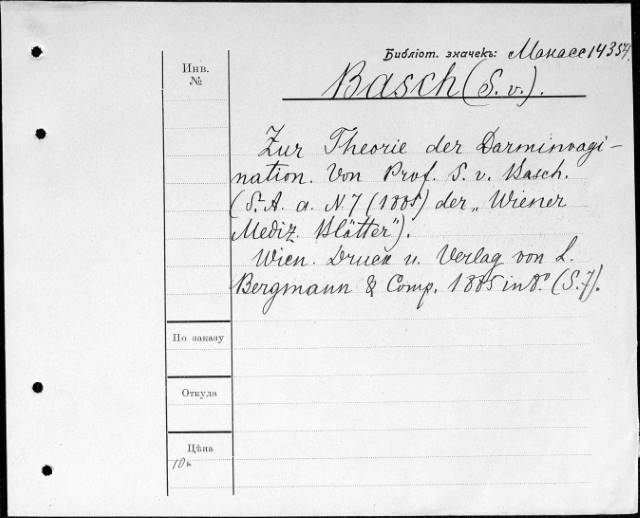 Библіот. значекъ: Манасс 14357.
Инв. №
Basch (S. v.).
Zur Theorie der Darminvagi-
nation. Von Prof. S. v. Basch.
(S. A. a. N. 7 (1885) der „Wiener
Mediz. Blätter").
Wien. Druck u. Verlag von L.
Bergmann & Comp. 1885 in 8º. (S. 7).
По заказу
Откуда
Цѣна
10 к